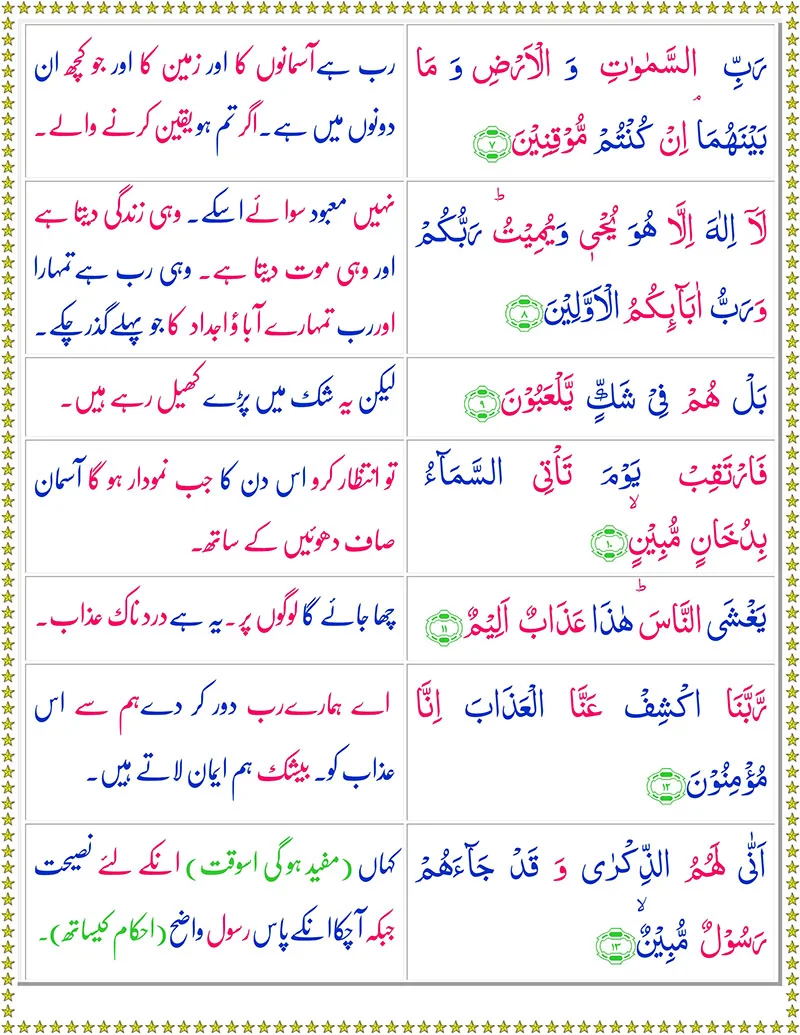 رَبِّ السَّمٰوٰتِ وَ الْاَرْضِ وَ مَا
بَيْنَهُمَا ۘ اِنْ كُنْتُمْ مُّوْقِنِيْنَ ۷
رب ہے آسمانوں کا اور زمین کا اور جو کچھ ان
دونوں میں ہے۔ اگر تم ہو یقین کرنے والے۔
لَاۤ اِلٰهَ اِلَّا هُوَ يُحْيٖ وَيُمِيْتُ ؕ رَبُّكُمْ
وَرَبُّ اٰبَآئِكُمُ الْاَوَّلِيْنَ ۸
نہیں معبود سوائے اسکے۔ وہی زندگی دیتا ہے
اور وہی موت دیتا ہے۔ وہی رب ہے تمہارا
اور رب تمہارے آباؤاجداد کا جو پہلے گذر چکے۔
بَلْ هُمْ فِيْ شَكٍّ يَّلْعَبُوْنَ ۹
لیکن یہ شک میں پڑے کھیل رہے ہیں۔
فَارْتَقِبْ يَوْمَ تَاْتِي السَّمَآءُ
بِدُخَانٍ مُّبِيْنٍ ۙ ۱۰
تو انتظار کرو اس دن کا جب نمودار ہو گا آسمان
صاف دھوئیں کے ساتھ۔
يَغْشَى النَّاسَ ؕ هٰذَا عَذَابٌ اَلِيْمٌ ۱۱
چھا جائے گا لوگوں پر۔ یہ ہے دردناک عذاب۔
رَبَّنَا اكْشِفْ عَنَّا الْعَذَابَ اِنَّا
مُؤْمِنُوْنَ ۱۲
اے ہمارے رب دور کر دے ہم سے اس
عذاب کو۔ بیشک ہم ایمان لاتے ہیں۔
اَنّٰى لَهُمُ الذِّكْرٰى وَ قَدْ جَآءَهُمْ
رَسُوْلٌ مُّبِيْنٌ ۙ ۱۳
کہاں (مفید ہوگی اسوقت) انکے لئے نصیحت
جبکہ آچکا انکے پاس رسول واضح (احکام کیساتھ)۔